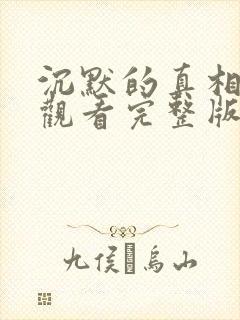 沉默的真相
觀看完整版
九侯 烏山